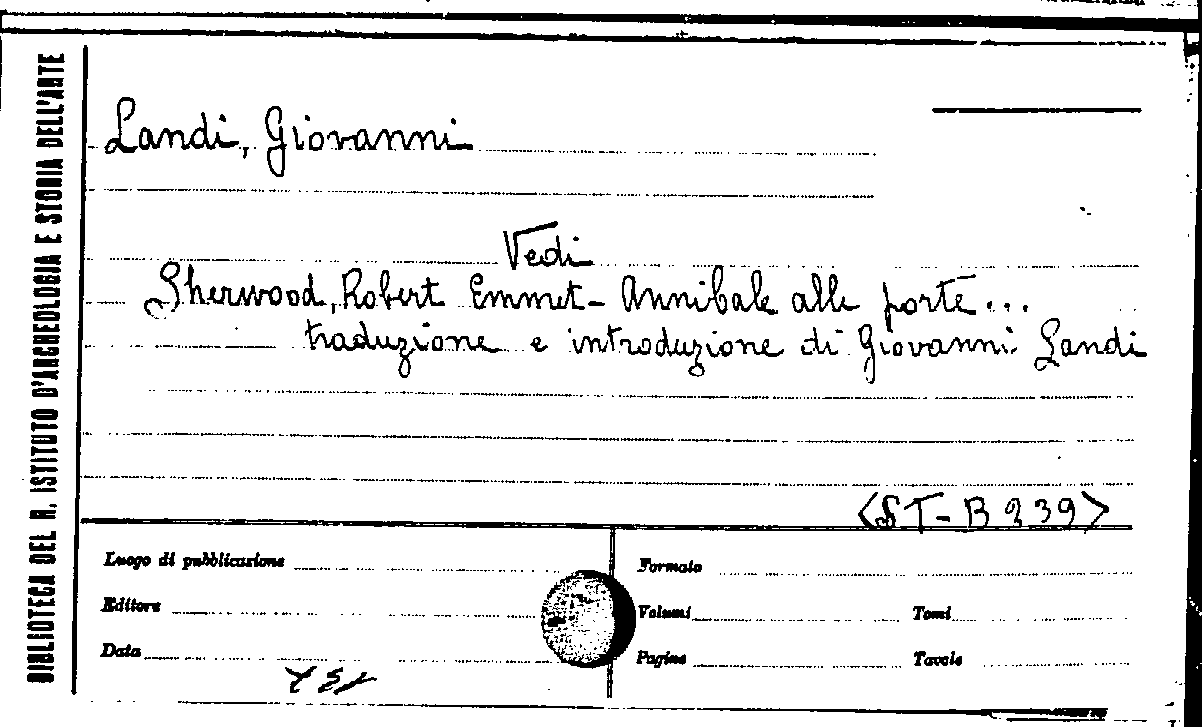 BIBLIOTECA DEL R. ISTITUTO D'ARCHEOLOGIA E STORIA DELL'ARTE
Landi, Giovanni
Vedi
Sherwood, Robert Emmet - Annibale alle porte...
traduzione e introduzione di Giovanni Landi
<ST-B 239>
Luogo di pubblicazione
Formato
Editore
Volumi
Tomi
Data
Pagine
Tavole